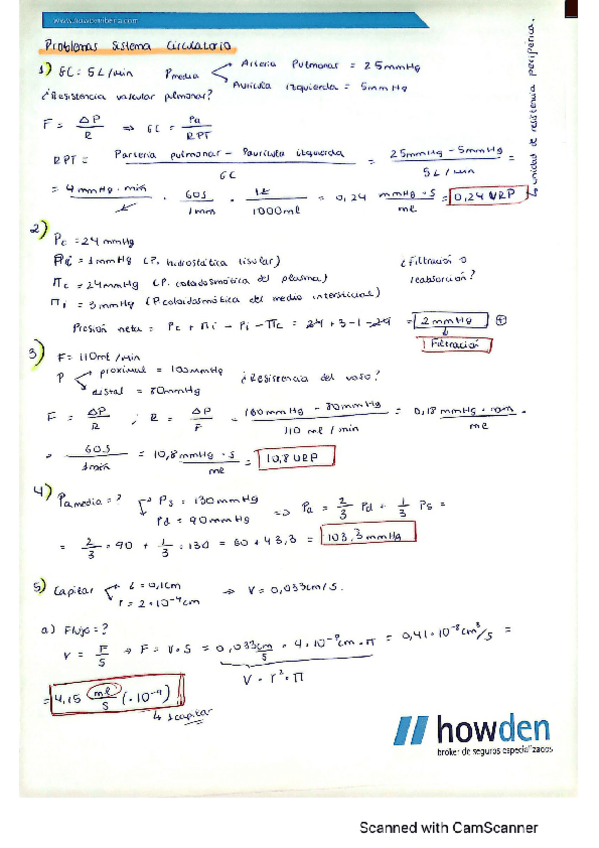 Problemas Sistema Circulatorio
1) GC: 5L/min Pmedia Arteria Pulmonar = 25mmHg
Aurícula izquierda = 5mmHg
¿Resistencia vascular pulmonar?
F = ΔP/R ⇒ GC = Pa/RPT
RPT = (Parteria pulmonar - Paurícula izquierda)/GC = (25mmHg - 5mmHg)/(5L/min) =
= 4 mmHg·min/L · 60s/1min · 1L/1000ml = 0,24 mmHg·s/ml = 0,24 URP
↳ unidad de resistencia periférica.
2) Pc = 24 mmHg
Pi = 1mmHg (P. hidrostática tisular) ¿Filtración o
πc = 24mmHg (P. coloidosmótica del plasma) reabsorción?
πi = 3mmHg (P coloidosmótica del medio intersticial)
Presión neta = Pc + πi - Pi - πc = 24+3-1-24 = 2 mmHg ⊕
Filtración
3) F = 110ml/min
P proximal = 100mmHg ¿Resistencia del vaso?
distal = 80mmHg
F = ΔP/R ; R = ΔP/F = (100mmHg - 80mmHg)/(110 ml/min) = 0,18 mmHg·min/ml ·
· 60s/1min = 10,8 mmHg·s/ml = 10,8 URP
4) Pa media = ? Ps = 130mmHg
Pd = 90mmHg ⇒ Pa = 2/3 Pd + 1/3 Ps =
= 2/3 · 90 + 1/3 · 130 = 60 + 43,3 = 103,3 mmHg
5) Capilar L = 0,1cm ⇒ V = 0,033cm/s.
r = 2·10⁻⁴cm
a) Flujo = ?
V = F/S ⇒ F = V·S = 0,033cm/s · 4·10⁻⁸cm·π = 0,41·10⁻⁸cm³/s =
V · r² · π
= 4,15 ml/s (·10⁻⁹)
↳ 1 capilar
howden
broker de seguros especializados
Scanned with CamScanner